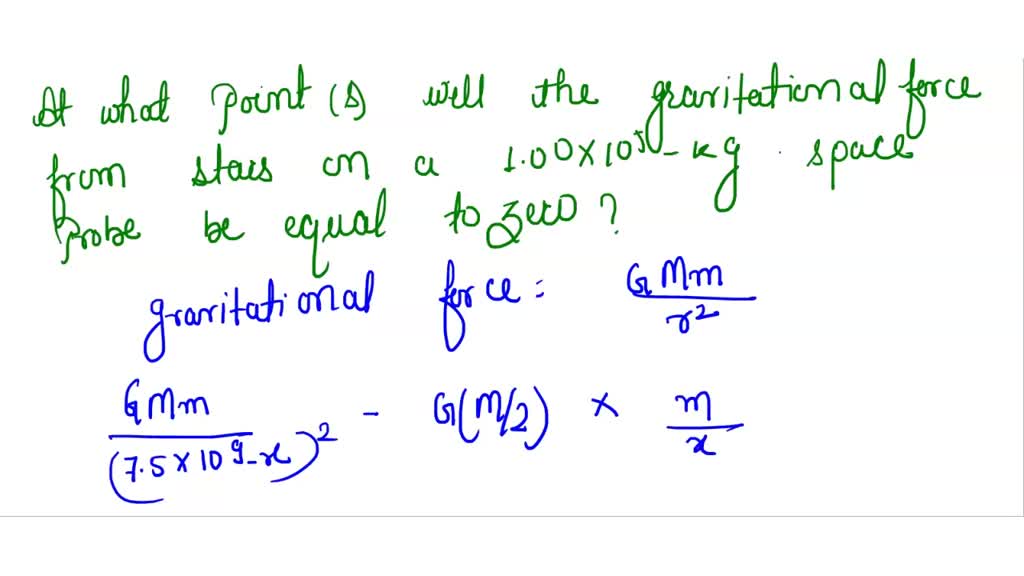 At what point(s) will the gravitational force
from stars on a 1.00×10⁵-kg space
probe be equal to zero?
gravitational force = GMm/r²
GMm/(7.5×10⁹-x)² - G(M/2) × m/x